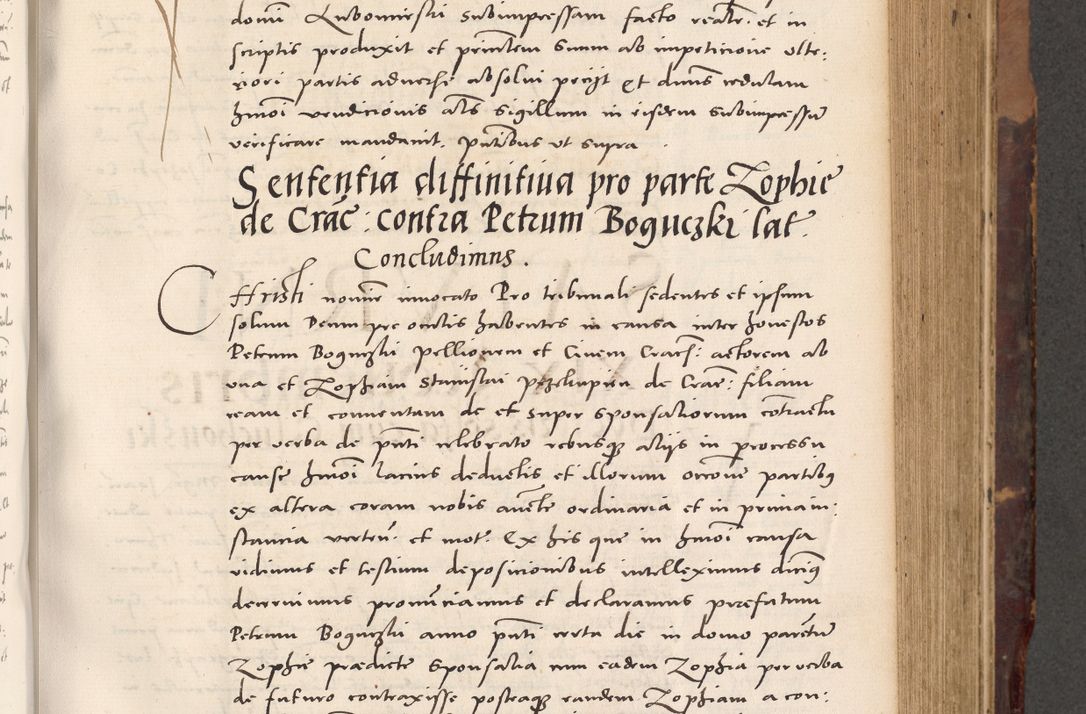 domini Lubomirski subimpressam facto realr: et in
scriptis produxit et prin͂tem suum ab impeticione ulte:
riori partis adverse absolui petijt Et dnus cedulam
hmoi vendicionis actis sigillum in eisdem subimpressum
verificare mandavit. pn͂tibus ut supra
Sententia diffinitiva pro parte Zophie
de Crac: contra Petrum Boguczki lat.
Concludimus.
Christi nomine invocato Pro tribunali sedentes et ipsum
solum Deum pre oculis habentes in causa inter honestos
Petrum Boguczki pellionem et Civem Crac: actorem ab
una et Zophiam Stanislai de Crac: filiam
ream et conventam de et super sponsaliorum contractu
per verba de pn͂ti celebrato rebusque alijs in processu
cause hmoi lacius deductis et illorum occone partibus
ex altera coram nobis aucte ordinaria et in prima in:
stancia verten: et mot: Ex his que in hmoi causa
vidimus et testium deposicionibus intelleximus dicimus
decernimus pronunciamus et declaramus prefatum
Petrum Boguczki anno pn͂ti certa die in domo parentum
Zophie predicte sponsalia cum eadem Zophia per verba
de futuro contraxisse posteaque eandem Zophiam a con: